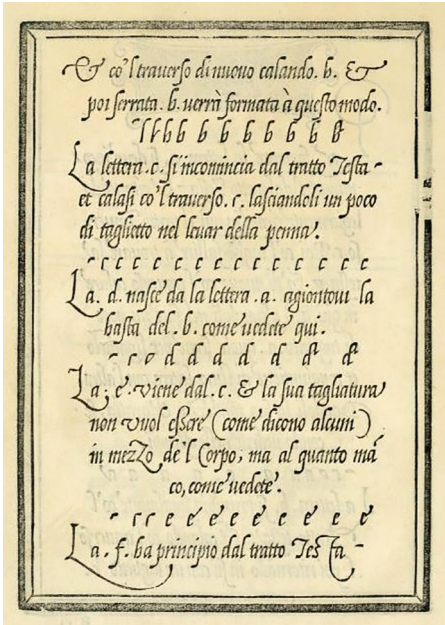 & co'l trauerso di nuouo calando. b. &
poi serrata. b. verrà formata à questo modo.
b b b b b b b b
La lettera. c. si incomincia dal tratto Testa -
et calasi co'l trauerso. c. lasciandoli un poco
di taglietto nel leuar della penna'.
- c c c c c c c c c c c c
La. d. nasce da la lettera. a. agiontoui la
hasta del. b. come uedete qui.
- c c o d d d d d d d
La; e. viene dal. c. & la sua tagliatura
non vuol essere (come dicono alcuni)
in mezZo de'l Corpo, ma al quanto mā
co, come uedete.
- c c e e e e e e e e
La. f. ha principio dal tratto Testa -